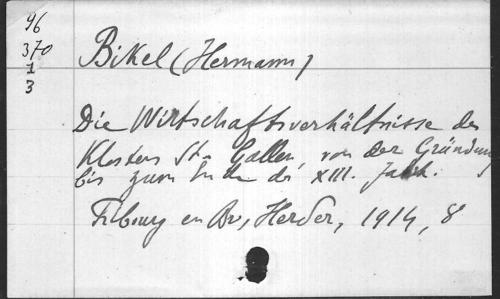 96
370
1
3
Bikel (Hermann)
Die Wirtschaftsverhältnisse des
Klosters St. Gallen, von der Gründung
bis zum Ende des XIII. Jahrh.
Fribourg en Br, Herder, 1914, 8